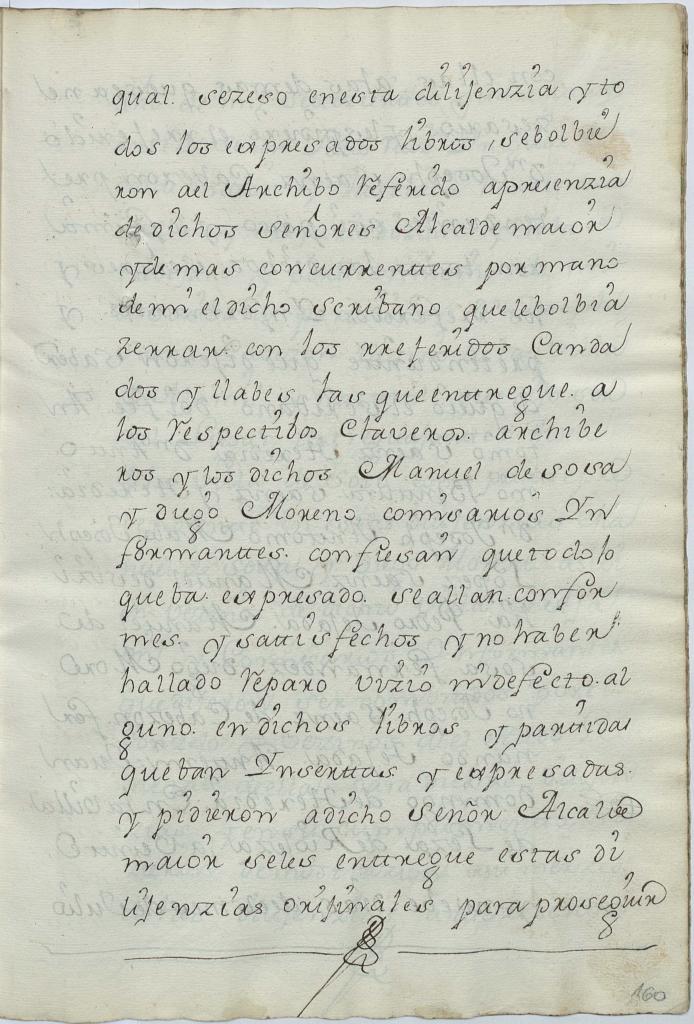 qual. sezeso enesta dilijenzia yto
dos los expresados libros, sebolbie
ron ael Archibo Referido apresenzia
de dichos señores Alcalde maior
y de mas concurrenttes por mano
de mi el dicho scribano quelebolbia
zerrar. con los rreferidos Canda
dos y llabes las que enttregue. a
los Respectibos Claveros. archibe
ros y los dichos Manuel de sosa
y diego Moreno comisarios Yn
formanttes. confiesan quetodo lo
queba. expresado. seallan confor
mes. y sattisfechos y no haber
hallado Reparo vizio ni defecto. al
guno. en dichos libros y parttidas
queban Ynserttas y expresadas.
y pidieron a dicho Señor Alcalde
maior seles enttregue estas di
lijenzias orijinales para proseguir
160